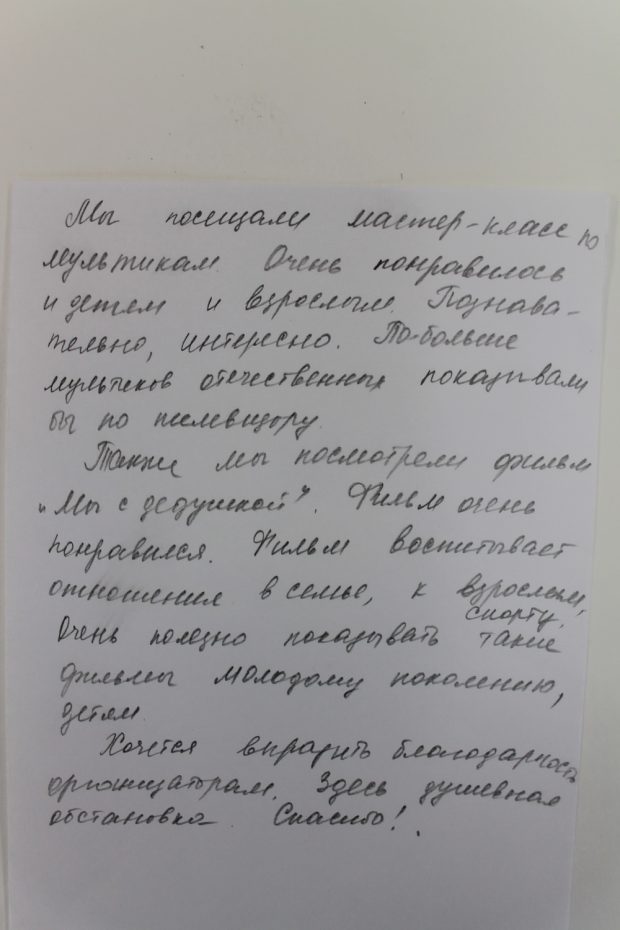 Мы посещали мастер-класс по
мультикам. Очень понравилось
и детям и взрослым. Познава-
тельно, интересно. По-больше
мультиков отечественных показывали
бы по телевизору.
Также мы посмотрели фильм
„Мы с дедушкой". Фильм очень
понравился. Фильм воспитывает
отношения в семье, к взрослым,
спорту.
Очень полезно показывать такие
фильмы молодому поколению,
детям.
Хочется выразить благодарность
организаторам. Здесь душевная
обстановка. Спасибо!